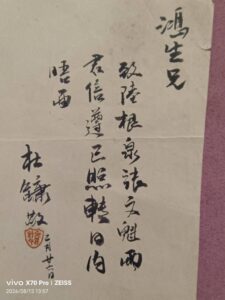 鴻生兄
致陸根泉張文魁兩
君信遵已照轉日內
晤面
杜鏞敬
二月廿六日
vivo X70 Pro | ZEISS
2024/08/13 13:57